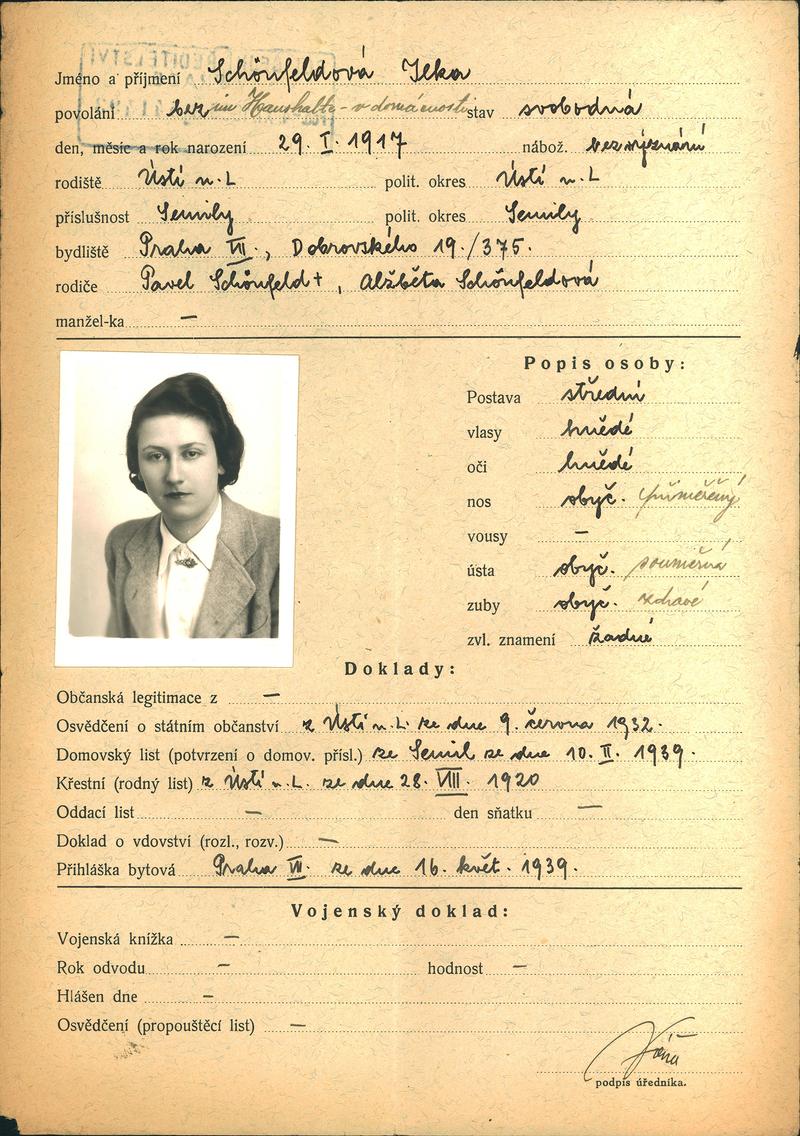 Jméno a příjmení Schönfeldová Ilka
povolání bez im Haushalte - v domácnosti stav svobodná
den, měsíc a rok narození 29. I. 1917 nábož. bez vyznání
rodiště Ústí n. L polit. okres Ústí n. L
příslušnost Semily polit. okres Semily
bydliště Praha VII., Dobrovského 19./375.
rodiče Pavel Schönfeld +, Alžběta Schönfeldová
manžel-ka —
Popis osoby:
Postava střední
vlasy hnědé
oči hnědé
nos obyč. přiměřený
vousy —
ústa obyč. souměrná
zuby obyč. zdravé
zvl. znamení žádné
Doklady:
Občanská legitimace z —
Osvědčení o státním občanství z Ústí n. L. ze dne 9. června 1932.
Domovský list (potvrzení o domov. přísl.) ze Semil ze dne 10. II. 1939.
Křestní (rodný list) z Ústí n. L. ze dne 28. VIII. 1920
Oddací list — den sňatku —
Doklad o vdovství (rozl., rozv.) —
Přihláška bytová Praha VII. ze dne 16. květ. 1939.
Vojenský doklad:
Vojenská knížka —
Rok odvodu — hodnost —
Hlášen dne —
Osvědčení (propouštěcí list) —
podpis úředníka.